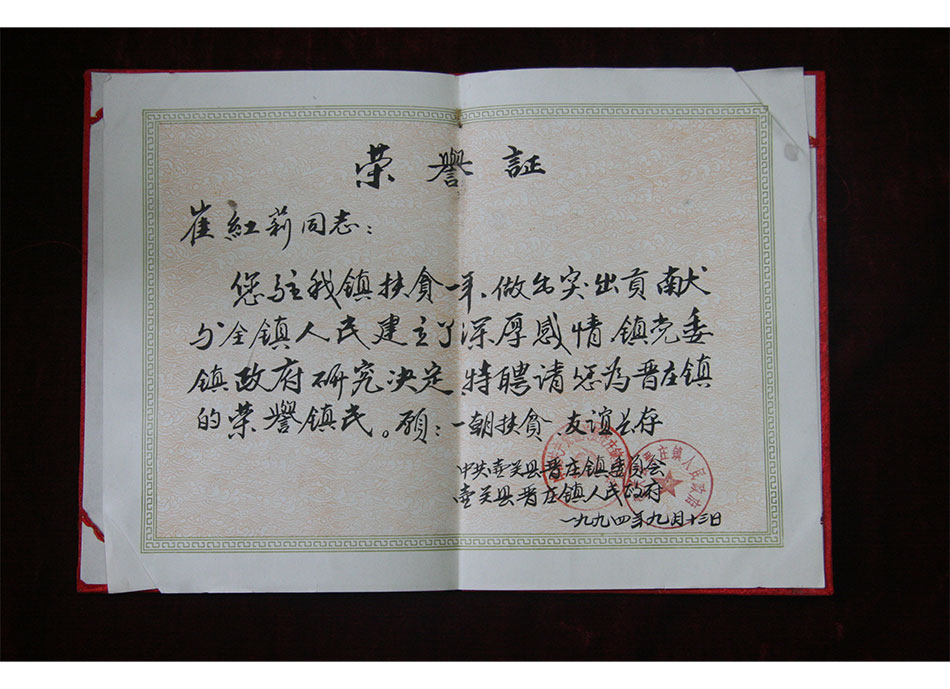 荣誉証
崔紅莉同志：
您驻我镇扶贫一年、做出突出贡献
与全镇人民建立了深厚感情镇党委
镇政府研究决定特聘请您为晋庄镇
的荣誉镇民。願：一朝扶贫 友谊长存
中共壶关县晋庄镇委员会
壶关县晋庄镇人民政府
一九九四年九月十三日